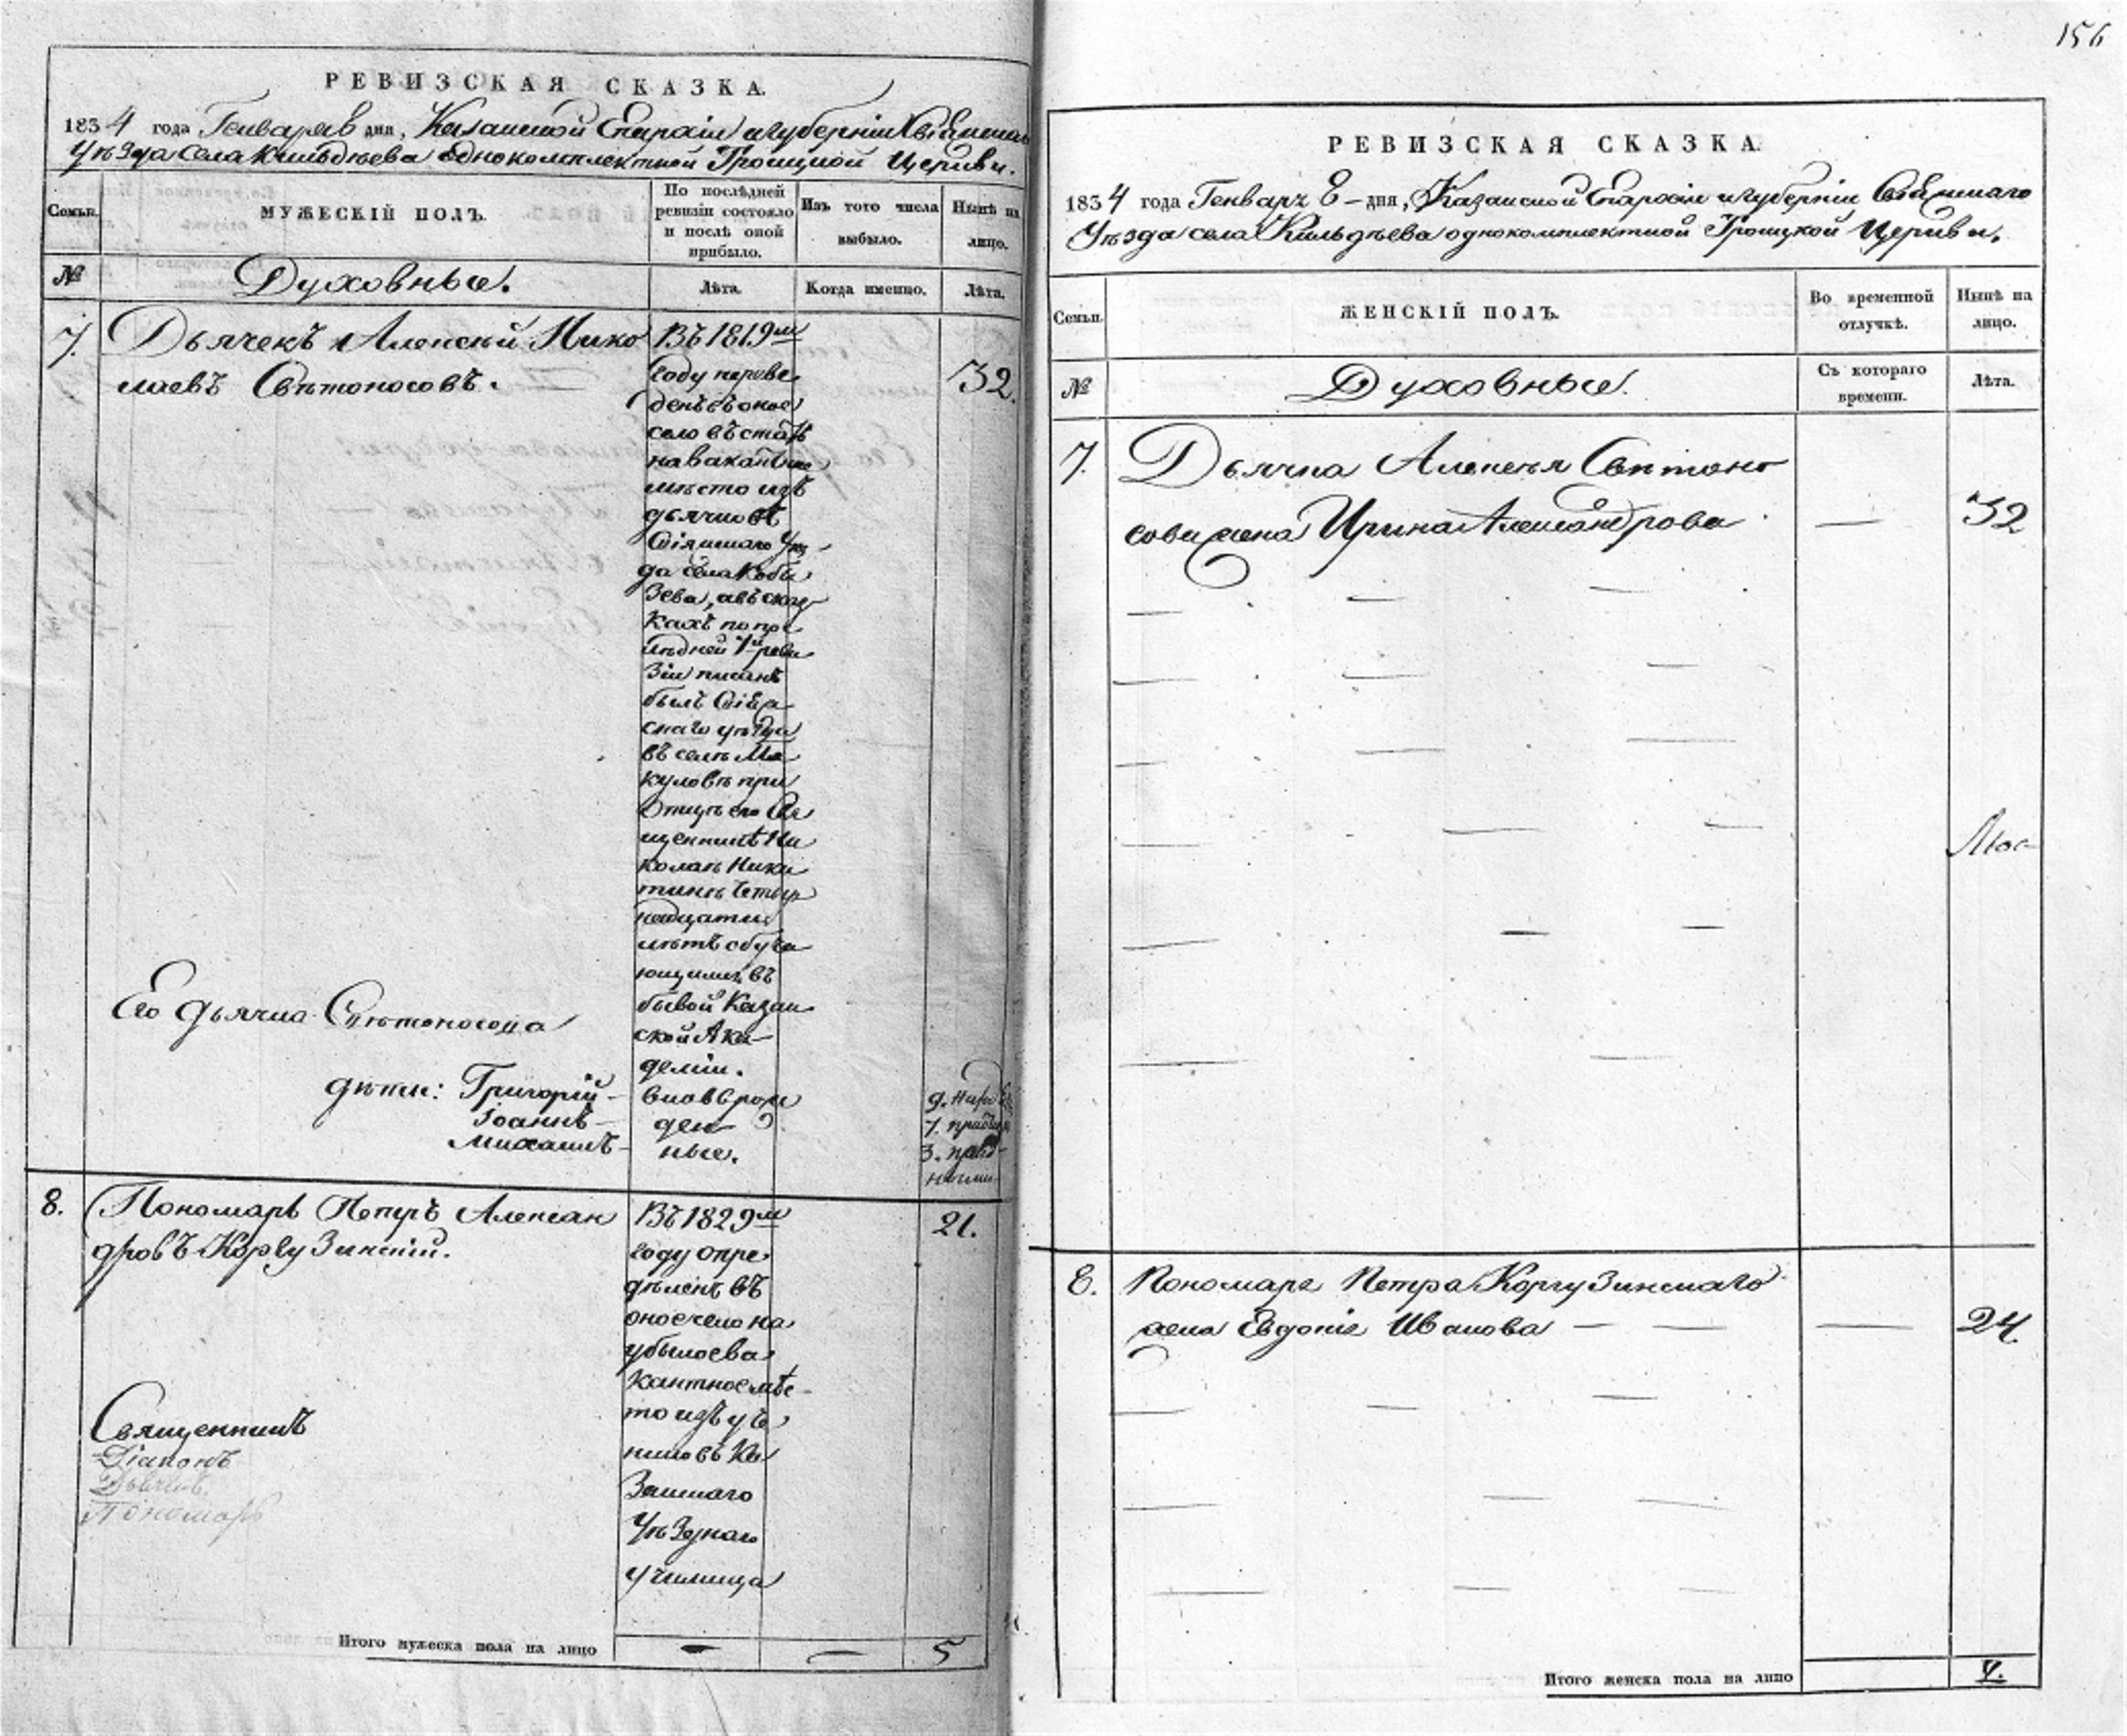 156
РЕВИЗСКАЯ СКАЗКА.
1834 года Генваря 8 дня, Казанской Епархіи и губерніи Свіяжскаго
Уѣзда села Кильдѣева однокомплектной Троицкой Церкви.
Семьи.
МУЖЕСКІЙ ПОЛЪ.
По послѣдней
ревизіи состояло
и послѣ оной
прибыло.
Изъ того числа
выбыло.
Нынѣ на
лицо.
№
Духовные.
Лѣта.
Когда именно.
Лѣта.
7.
Дьячекъ Алексѣй Нико
лаевъ Свѣтоносовъ.
Въ 1819м
году переве
денъ въ оное
село въ
на вакантное
мѣсто изъ
дьячковъ
Свіяжскаго Уѣз
да села Кобы
зева, а въ сказ
кахъ по пос
лѣдней 7й реви
зіи писанъ
былъ Свіяж
скаго уѣзда
въ селѣ Ма
куловѣ при
Отцѣ его Свя
щенникѣ Ни
колаѣ Ники
тинѣ четыр
надцати
лѣтъ обуча
ющимся въ
бывой Казан
ской Ака
деміи.
32.
Его дьячка Свѣтоносова
дѣти: Григорій
Іоаннъ
Михаилъ
вновврож
ден
ные.
9.
7.
3.
8.
Пономарь Петръ Алексан
дровъ Коргузинскій.
Въ 1829м
году опре
дѣленъ въ
оное село на
убылое ва
кантное мѣс
то изъ уче
никовъ Ка
занскаго
Уѣзднаго
училища
21.
Священникъ
Діаконъ
Дьячекъ
Пономарь
Итого мужеска пола на лицо
5
РЕВИЗСКАЯ СКАЗКА.
1834 года Генваря 8 дня, Казанской Епархіи и губерніи Свіяжскаго
Уѣзда села Кильдѣева однокомплектной Троицкой Церкви.
Семьи.
ЖЕНСКІЙ ПОЛЪ.
Во временной
отлучкѣ.
Нынѣ на
лицо.
№
Духовные.
Съ котораго
времени.
Лѣта.
7.
Дьячка Алексѣя Свѣтоно
сова жена Ирина Александрова
32
8.
Пономаря Петра Коргузинскаго
жена Евдокія Иванова
24.
Итого женска пола на лицо
2.